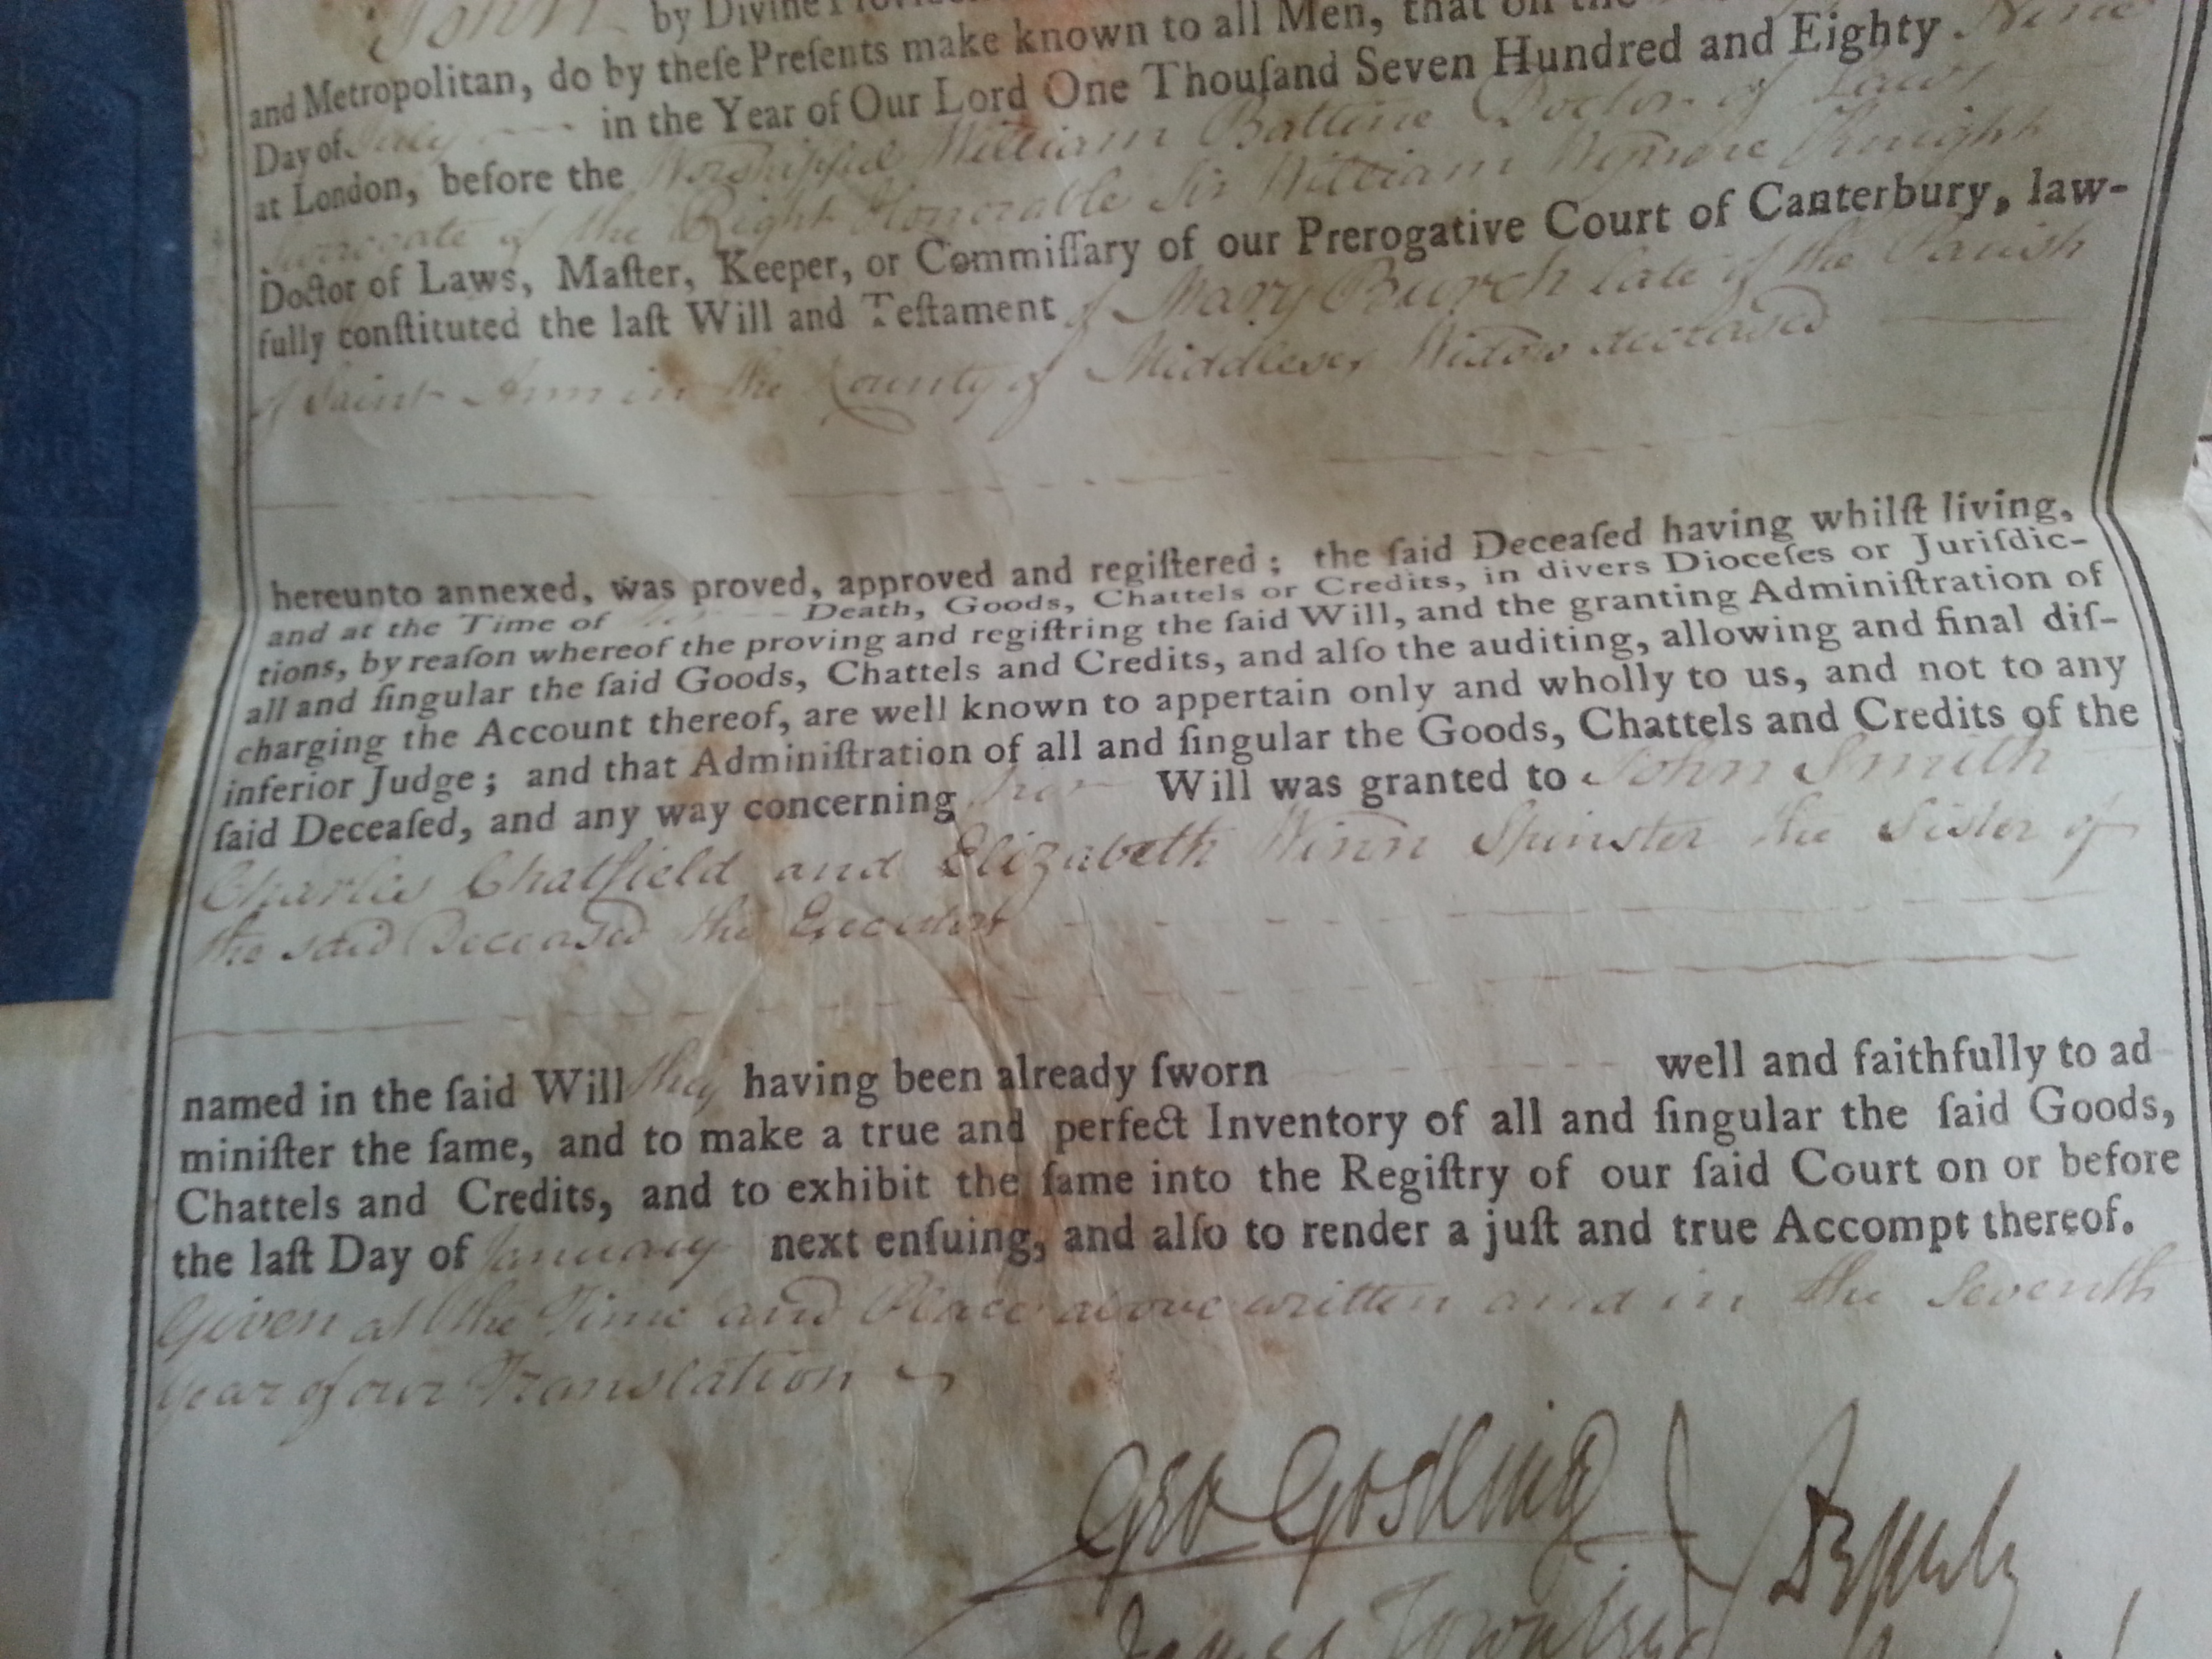 John by Divine
and Metropolitan, do by theſe Preſents make known to all Men, that on the
Day of July in the Year of Our Lord One Thouſand Seven Hundred and Eighty Nine
at London, before the Worshipful William Battine Doctor of Laws
Surrogate of the Right Honorable Sir William Wynne Knight
Doctor of Laws, Maſter, Keeper, or Commiſſary of our Prerogative Court of Canterbury, law-
fully conſtituted the laſt Will and Teſtament of Mary Burch late of the Parish
of Saint Ann in the County of Middlesex Widow deceased
hereunto annexed, was proved, approved and regiſtered; the ſaid Deceaſed having whilſt living,
and at the Time of her Death, Goods, Chattels or Credits, in divers Dioceſes or Juriſdic-
tions, by reaſon whereof the proving and regiſtring the ſaid Will, and the granting Adminiſtration of
all and ſingular the ſaid Goods, Chattels and Credits, and alſo the auditing, allowing and final diſ-
charging the Account thereof, are well known to appertain only and wholly to us, and not to any
inferior Judge; and that Adminiſtration of all and ſingular the Goods, Chattels and Credits of the
ſaid Deceaſed, and any way concerning her Will was granted to John Smith
Charles Chatfield and Elizabeth Winn Spinster the Sister of
the said Deceased the Executors
named in the ſaid Will they having been already ſworn well and faithfully to ad
miniſter the ſame, and to make a true and perfect Inventory of all and ſingular the ſaid Goods,
Chattels and Credits, and to exhibit the ſame into the Regiſtry of our ſaid Court on or before
the laſt Day of January next enſuing, and alſo to render a juſt and true Accompt thereof.
Given at the Time and Place above written and in the Seventh
year of our Translation
Geo Gostling
James Townley
Deputy